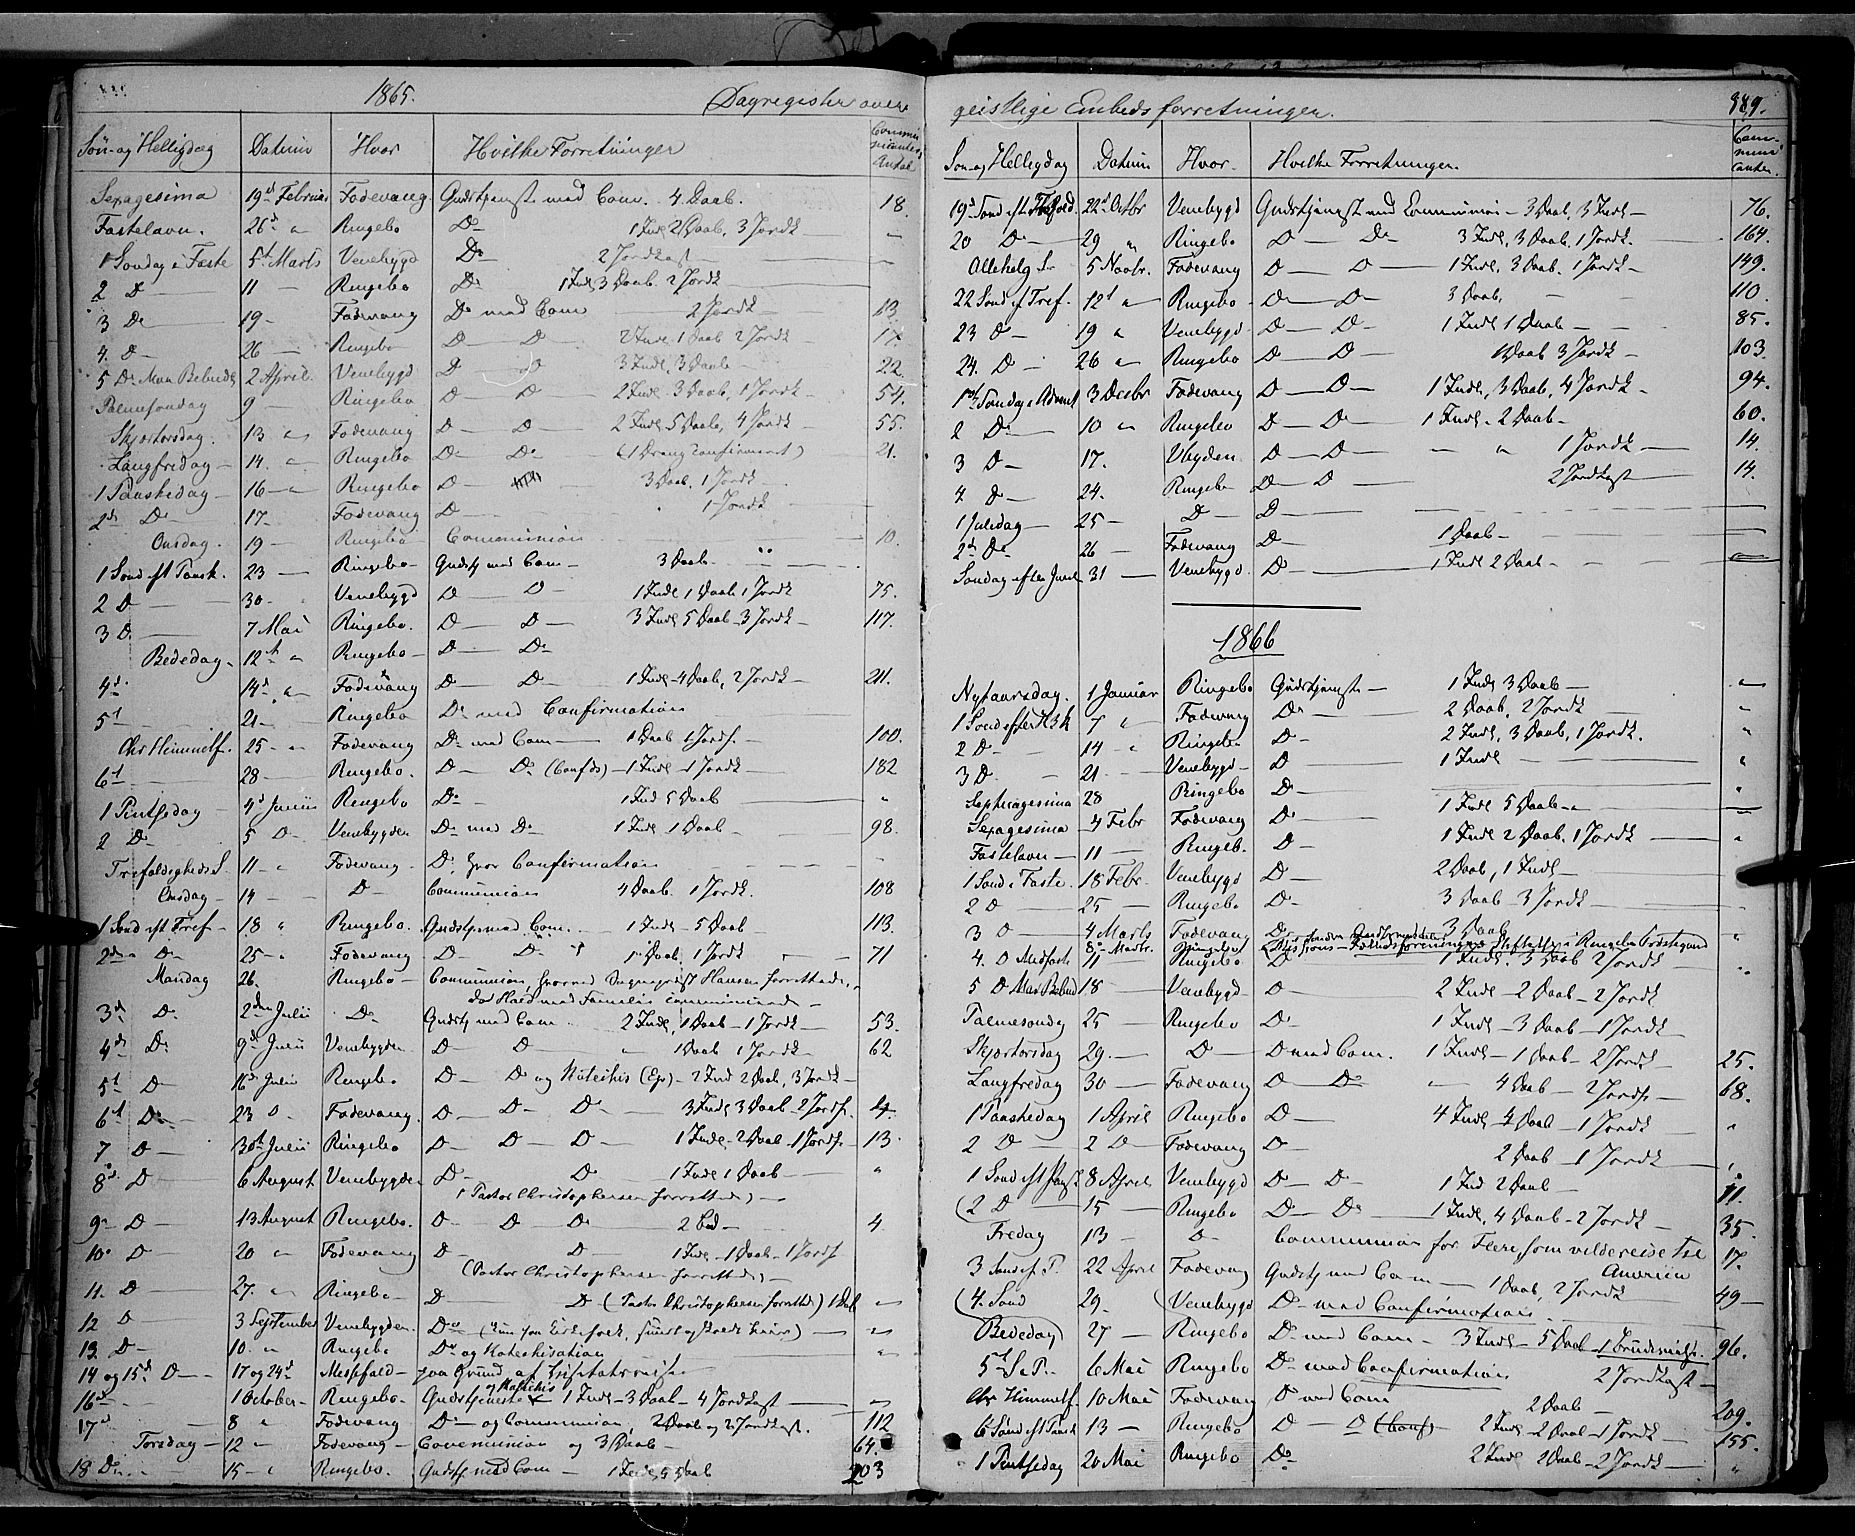 1865.
Dagregister over
Søn- og Helligdag Datum Hvor Hvilke Forretninger Communicanters Antal
Sexagesima 19d Februar Fodevang Gudstjeneste med Com. 4 Daab. 18.
Fastelavn. 26d " Ringebo Do 1 Indl 2 Daab, 3 Jordk —
1 Søndag i Faste 5t Marts Venebygd Do 2 Jordkast —
2 D — 11 — Ringebo Do 1 Indl 3 Daab. 2 Jordk
3 Do 19 — Fodevang Do med Com 2 Jordk — 13.
4. D — 26 — Ringebo D — D — 2 Indl. 1 Daab 2 Jordk 17
5 D. Mar. Bebud 2 April. Venebygd D — D 3 Indl, 3 Daab — 22.
Palmesøndag 9 — Ringebo D — D 2 Indl. 3 Daab, 1 Jordk — 54.
Skjærtorsdag. 13 " Fodevang D — D — 2 Indl. 5 Daab, 4 Jordk — 55.
Langfredag — 14. " Ringebo D — Do (1 Dreng confirmeret) 21.
1 Paaskedag — 16 — " Ringebo D — 3 Daab, 1 Jordk —
2d D — 17. Fodevang D — 1 Jordk
Onsdag. 19 — Ringebo Communion — 10.
1 Sønd eft Paask. 23 — Ringebo — Gudstj med Com — 3 Daab.
2 D — 30 — Venebygd D — D — 1 Indl 1 Daab 1 Jordk 75.
3 D. — 7 Mai Ringebo. D — D — 3 Indl 5 Daab — 3 Jordk — 117.
Bededag — 12t " Ringebo — D — Do
4d. 14d " Fodevang D — D — 1 Indl — 4 Daab, 2 Jordk — 211.
5t 21 — Ringebo D — med Confirmation
Chr Himmelf. 25 — " Fodevang D — med Com — 1 Daab 1 Jordf. — 100.
6t — 28 — Ringebo. D — D. (Confds) — 1 Indl — 1 Jordk — 182
1 Pintsedag — 4d Junii Ringebo Do — 1 Ind 5 Daab — "
2 D — 5 D — Venebygden Do med Do 1 Indl 1 Daab — 98.
Trefoldigheds S. 11 — " Fodevang — D; hvor Confirmation —
Onsdag — 14 — D — Communion 4 Daab. 1 Jordk. 108
1 Sønd eft Tref — 18 " Ringebo. Gudstj med Com. — 1 Indl 5 Daab — 113.
2d — D — 25 — " Fodevang D — D — 1 Daab, 1 Jordk — 71
Mandag 26. Ringebo — Communion, hvorved Sognepræst Hansen forrettede,
da Hard med Familie communicerede —
3d D. 2den Julii D — Gudstj med Com. 2 Indl, 1 Daab — 1 Jordk — 53.
4d D. 9d Julii Venebygden D — D — 1 Daab 1 Jordk — 62
5t D — 16d Julii Ringebo D — D og Katechis (Ep) — 2 Ind 2 Daab, 3 Jordk —
6t D. — 23 D. Fodevang. D — D — D. — 3 Indl 3 Daab — 2 Jordf. 4.
7 D — 30t Julii Ringebo D — D — D — 1 Indl — 2 Daab — 1 Jordf. 13.
8d D — 6 August Venebygden D — D. 1 Indl 1 Daab — "
(Pastor Christophersen forrettede) —
9 — D — 13 August Ringebo. D — D — D. 2 Ind — 4.
10 D — 20 " Fodevang D — D — 1 Indl — 1 Daab — 1 Jordf
(Pastor Christophersen forrettede) —
11. D — 27. " Ringebo — D — D (Pastor Christophersen forrettede) 1 Indl "
12 D — 3 September Venebygden. D — "
13. D — 10. " Ringebo D. og Katechisation "
14 og 15d D — 17 og 24d Messfald — paa Grund af Visitatsreise
16d — 1 October — Ringebo — Gudstjeneste og Katechis 1 Indl — 3 Daab — 4 Jordkast — "
17d — 8 " Fodevang D — og Communion, 2 Daab og 3 Jordkast. 112
Torsdag — 12 " Fodevang — Communion og 3 Daab — 64.
18 D — 15 — " Ringebo. Gudstj med Com — 1 Indl, 5 Daab 203
geistlige Embedsforretninger. 389.
Søn- og Helligdag Datum Hvor Hvilke Forretninger. Communicanter.
19d Sønd eft Trefold. 22d Octbr Venebygd Gudstjenst med Communion — 3 Daab, 3 Indl — 76.
20 D — 29 " Ringebo D — Do 3 Indl, 3 Daab, 1 Jordk. — 164.
Allehelg S — 5 Novbr. Fodevang D — D — 1 Indl, 3 Daab. 1 Jordk — 149.
22 Sønd ef Tref. 12t " Ringebo D — D — 3 Daab, — 110.
23 D — 19 " Venebygd D — D — 1 Indl 1 Daab — 85.
24. D — 26 " Ringebo D — D — 1 Daab 3 Jordk — 103.
1st Søndag i Advent 3 Decbr Fodevang D — D — 1 Indl, 3 Daab, 4 Jordk — 94.
2 D — 10 " Ringebo D — D — 1 Indl. 2 Daab — 60.
3 D — 17. Vbygden D — D — — " 1 Jordk — 14.
4 D — 24. Ringebo D — D — 2 Jordkast — 14.
1 Juledag — 25 — D — D —
2d D — 26 — Fodevang D — 1 Daab —
Søndag efter Juul 31 — Venebygd. D — 1 Indl 2 Daab —
1866
Nytaarsdag. 1 Januar Ringebo Gudstjenste — 1 Indl 3 Daab — "
1 Sønd efter H3K 7 " Fodevang D — 2 Daab, 2 Jordk — "
2 D — 14 — " Ringebo D — 2 Indl, 3 Daab, 1 Jordk. "
3 D. — 21 — Venebygd — D — 1 Indl — "
Septuagesima 28 Ringebo D — "
Sexagesima — 4 Febr Fodevang D — 1 Indl 5 Daab —
Fastelavn — 11 — Ringeb. D — 1 Indl 2 Daab. 1 Jordk — "
1 Sønd i Faste. 18 Febr. Venebygd D — 2 Daab, 1 Indl —
2 D — 25 — Ringebo D — 3 Daab — 3 Jordk —
3 D — 4 Marts Fodevang D — 3 Daab "
8 Martr. Ringebo Missions- i Ringebo Præstegaard
4. D Midfaste 11 Ringebo D 1 Indl. 3 Daab 2 Jordk — "
5 D Mar Bebud 18 — Venebygd — D — 2 Indl — 2 Daab — 2 Jordk
Palmesøndg 25 — Ringebo D — 1 Indl — 3 Daab — 1 Jordk —
Skjærtorsdag 29. — D — D med Com. 1 Indl — 1 Daab — 2 Jordk — 25.
Langfredag 30 — Fodevang D — D — " 4 Daab — 2 Jordf — 68.
1 Paaskedag 1 April Ringebo D — 4 Indl — 4 Daab — 1 Jordk — "
2 D — 2 D — Fodevang D — 2 Daab — 1 Jordk —
1 Sønd eft Paask 8 April Venebygd D — D — 1 Ind 2 Daab — 11.
(2 D — 15 — Ringebo D — D — 1 Indl, 4 Daab — 2 Jordk — 35.
Fredag 13 — D Communion for Flere som vilde reise til 17.
3 Sønd ef P. 22 April Fodevang Gudstj med Com — 1 Daab, 2 Jordk Amerika
(4. Sønd 29. (Venebygd D — med Confirmation 49 —
Bededag) 27 — Ringebo D — med Com — 3 Indl — 5 Daab — 1 Brudevielse. 96.
5t S. P. 6 Mai Ringebo D — med Confirmation 2 Jordkast —
Chr Himmelf. 10 Mai Fodevang D med Com 2 Daab — 209.
6 Sønd eft Paask 13 — Ringebo D — D (Conf) — 2 Indl — 2 Daab — 1 Jordk — 155.
1 Pintsedag 20 Mai Ringebo Do 2 Indl 2 Daab — 2 Jordk — "